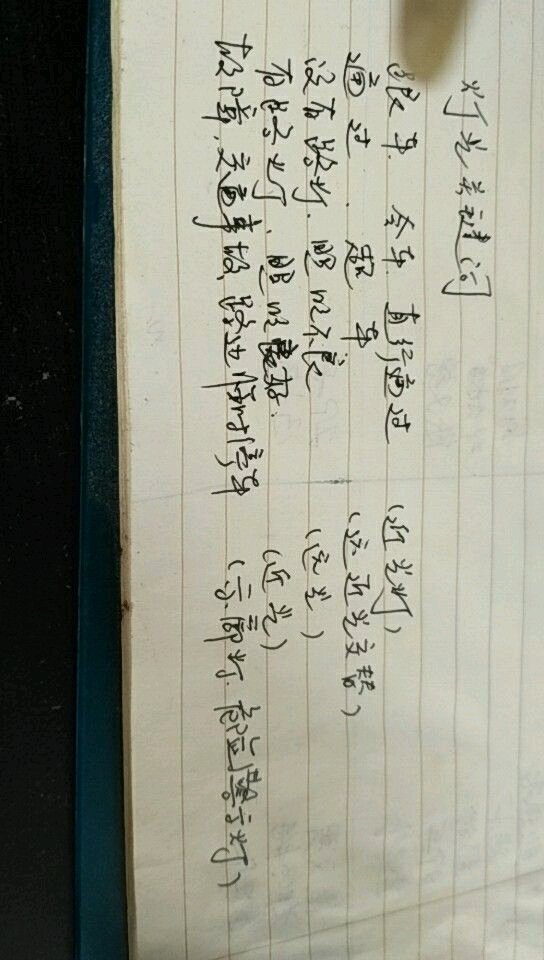 灯光关键词
跟车. 会车. 直行通过 (近光灯)
通过. 超车 (远近光交替)
没有路灯. 照明不良 (远光)
有路灯. 照明良好. (近光)
故障, 交通事故, 路边临时停车 (示廓灯. 危险警示灯)